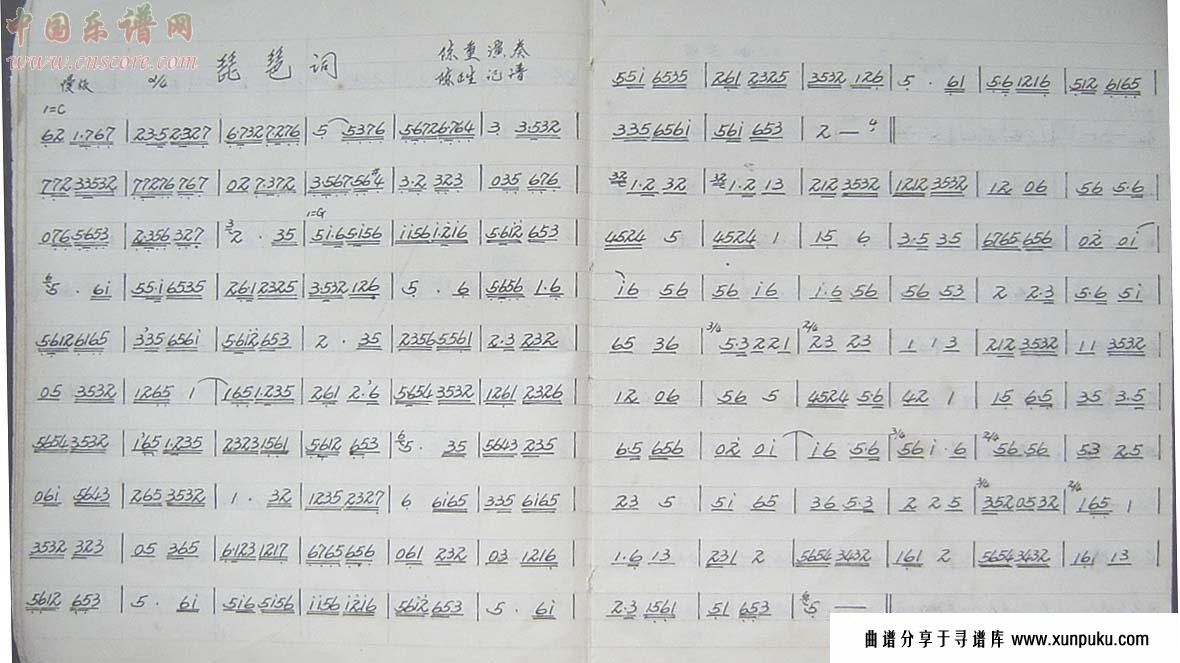 中国乐谱网
www.cnscore.com
琵琶词
慢板 2/4
演奏
记谱
1=C
62 1·767 | 2352327 | 6·7327276 | 5 5376 | 56726764 | 3 3·532 |
772 33532 | 77276 767 | 02 7·372 | 3·567·56#4 | 3·2 323 | 035 676 |
1=G
076 5653 | 2356 327 | 2 · 35 | 5i65i56 | ii56i2i6 | 56i2 653 |
5 · 6i | 55·i6535 | 26·12325 | 3·532 126 | 5 · 6 | 5656 1·6 |
56126165 | 335656i | 56i2653 | 2 · 35 | 23565561 | 2·3 232 |
05 3532 | 1265 1 | 1651·235 | 261 2·6 | 5654 3532 | 1261 2326 |
5654 3532 | 165 1·235 | 23231561 | 5612 653 | 5 · 35 | 5643 235 |
06i 5643 | 265 3532 | 1 · 32 | 1235 2327 | 6 6i65 | 335 6i65 |
3532 323 | 05 365 | 6·123 1217 | 6765 656 | 061 232 | 03 1216 |
5612 653 | 5 · 6i | 5i6 5i56 | ii56 i2i6 | 56i2 653 | 5 · 6i |
55i 6535 | 261 2325 | 3532 126 | 5 · 61 | 56 1216 | 512 6165 |
335 656i | 56i 653 | 2 — ‖
1·2 32 | 1·2 13 | 212 3532 | 1212 3532 | 12 06 | 56 5·6 |
4524 5 | 4524 1 | 15 6 | 3·5 35 | 6765 656 | 02 0i |
i6 56 | 56 i6 | i·6 56 | 56 53 | 2 2·3 | 5·6 5i |
65 36 | 3/4 5·3 2 2 1 | 2/4 23 23 | 1 1 3 | 212 3532 | 11 3532 |
12 06 | 56 5 | 4524 56 | 42 1 | 15 6·5 | 35 3·5 |
6·5 656 | 02 0i | i6 5·6 | 3/4 56 i·6 | 2/4 56 56 | 53 25 |
23 5 | 5i 65 | 36 5·3 | 2 2 5 | 3/4 352 0532 | 2/4 165 1 |
1·6 13 | 231 2 | 5654 3432 | 161 2 | 5654 3432 | 161 13 |
2·3 1561 | 51 653 | 5 — ‖
曲谱分享于寻谱库 www.xunpuku.com